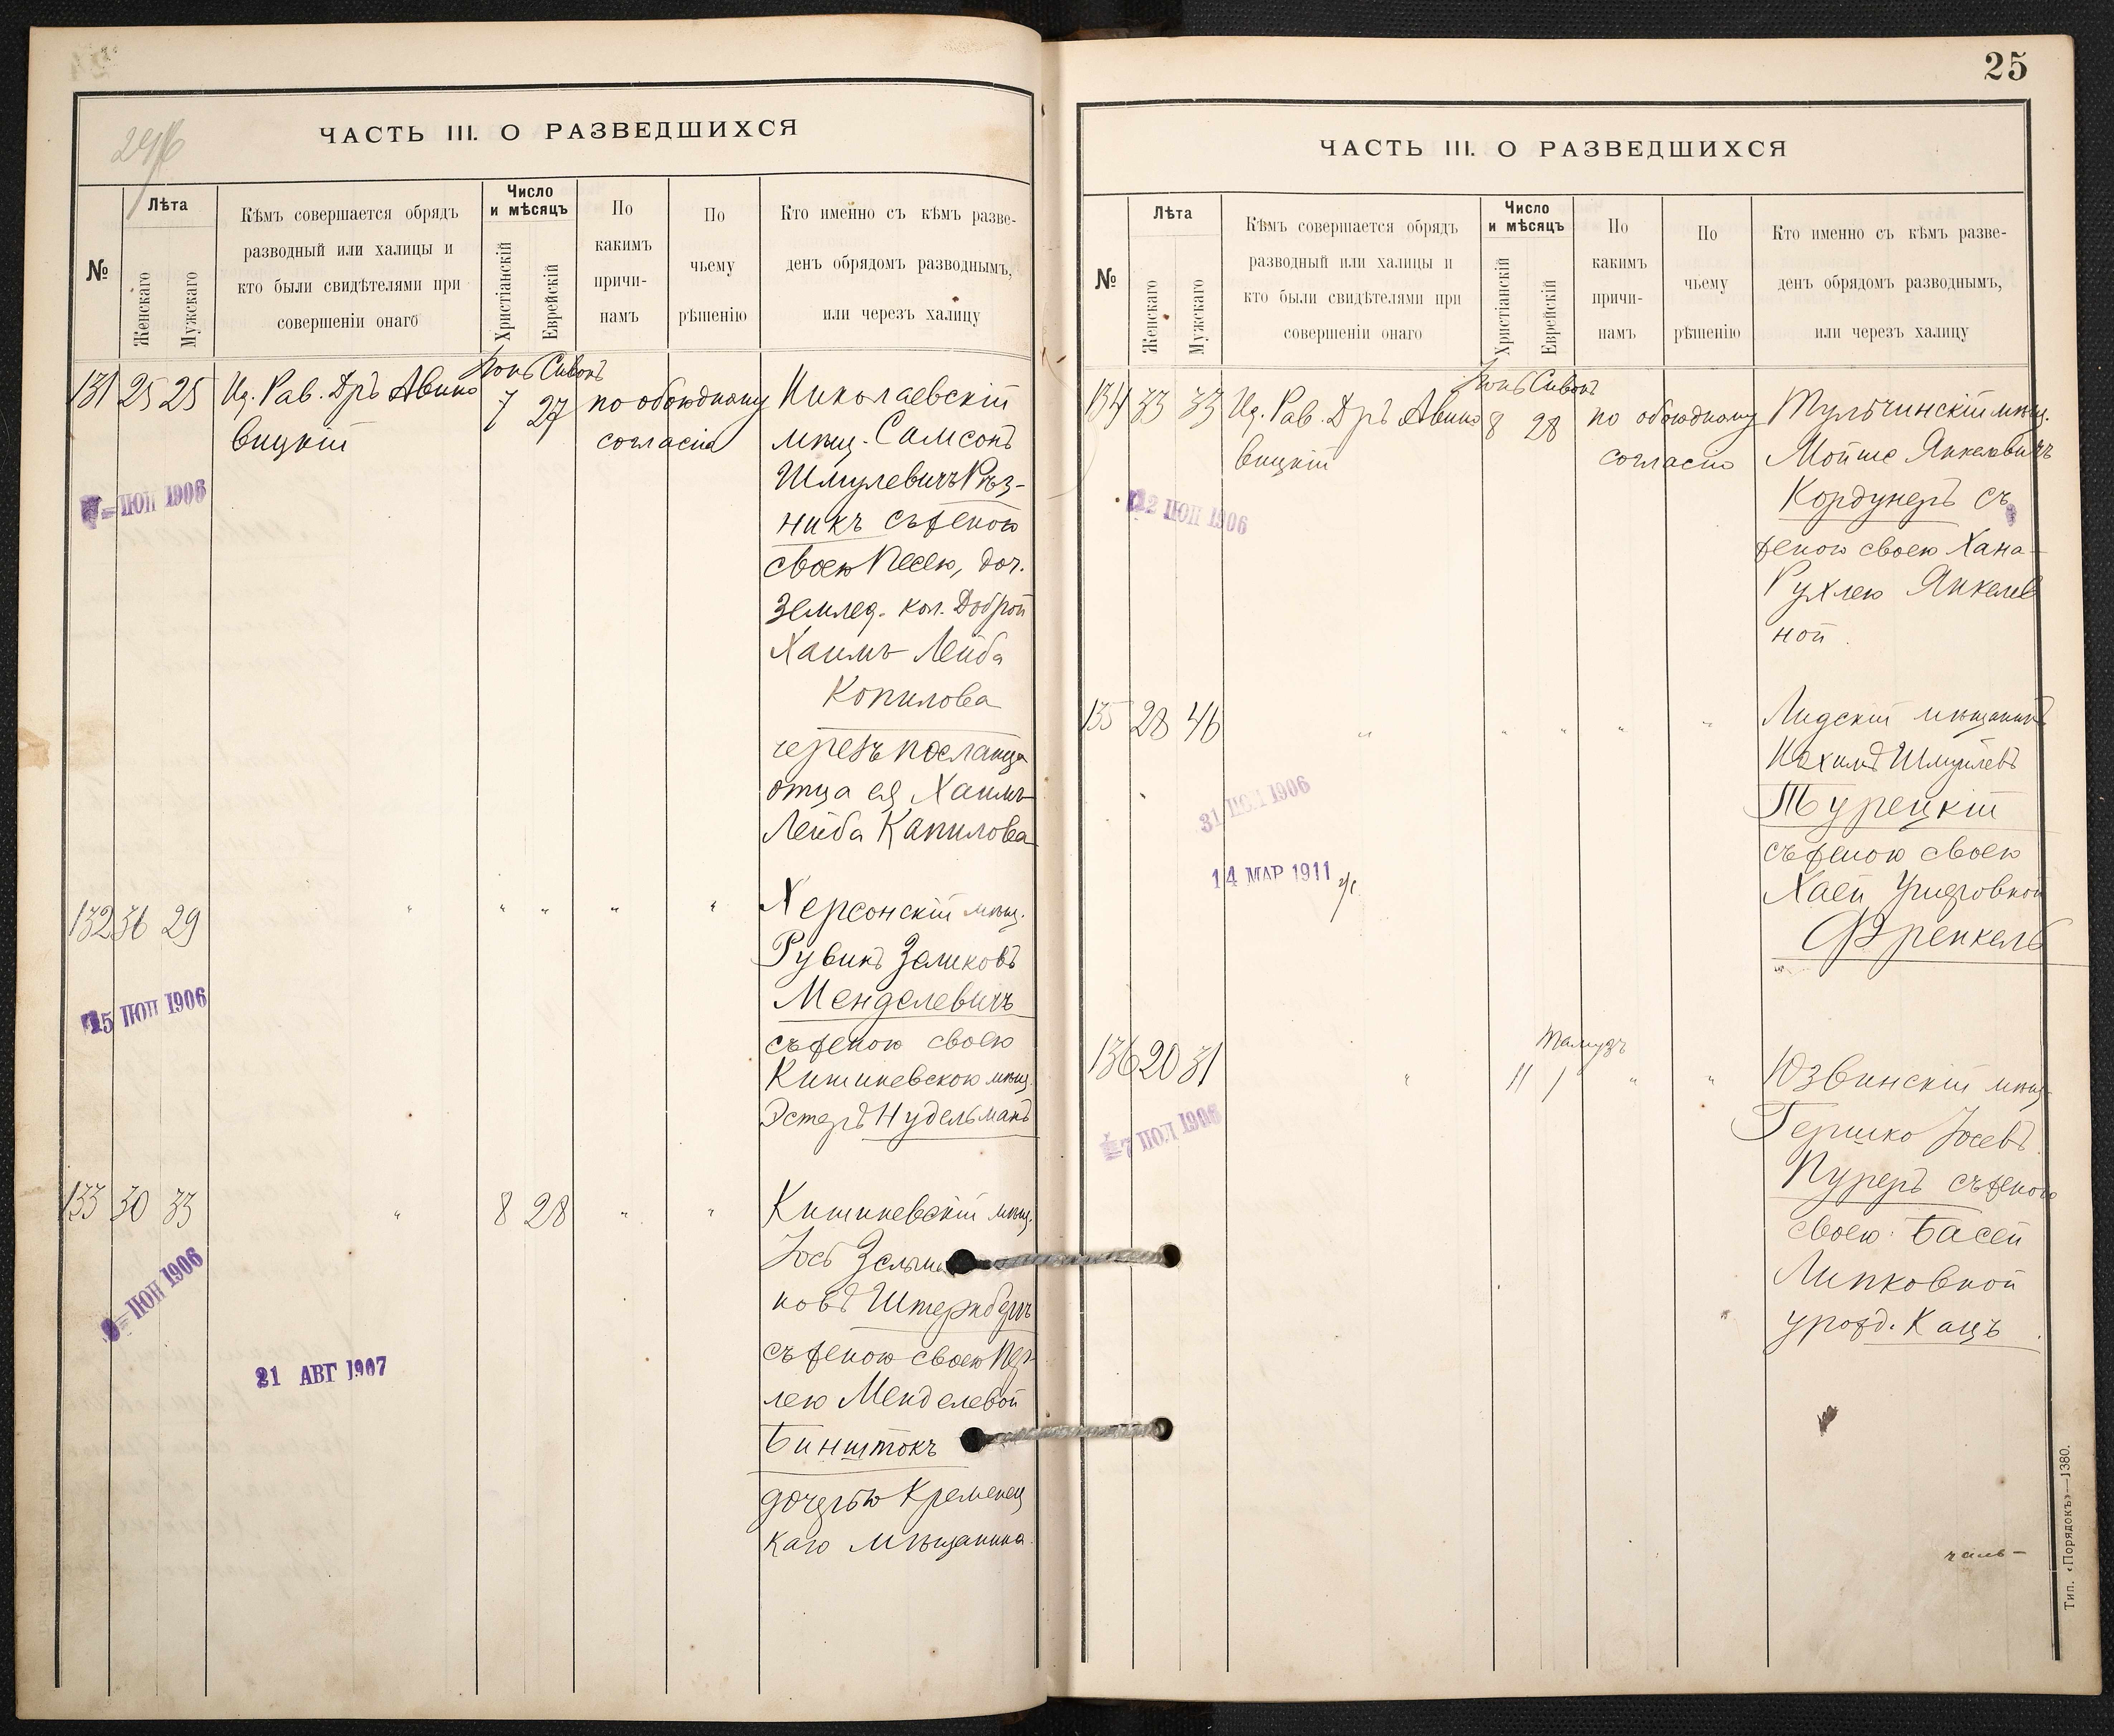 ЧАСТЬ III. О РАЗВЕДШИХСЯ
№
Лѣта
Женскаго
Мужскаго
Кѣмъ совершается обрядъ
разводный или халицы и
кто были свидѣтелями при
совершеніи онаго
Число
и мѣсяцъ
Христіанскій
Еврейскій
По
какимъ
причи-
намъ
По
чьему
рѣшенію
Кто именно съ кѣмъ разве-
денъ обрядомъ разводнымъ,
или черезъ халицу
131 25 25 Ид. Рав. Дръ Авино
вицкій
Іюнь Сивонъ
7 27
по обоюдному
согласію
Николаевскій
мѣщ. Самсонъ
Шмулевичъ Рѣз-
никъ съ женою
своею Песею, доч.
землед. кол. Доброй
Хаимъ Лейба
Копилова
черезъ посланца
отца ея Хаимъ
Лейба Капилова
7= ІЮН 1906
132 36 29 " " " " "
Херсонскій мѣщ.
Рувинъ Заликовъ
Менделевичъ
съ женою своею
Кишиневскою мѣщ.
Эстеръ Нудельманъ
15 ІЮН 1906
133 30 33 " 8 28 " "
Кишиневскій мѣщ.
Іось
новъ Штернбергъ
съ женою своею Пер-
лею Менделевой
Бинштокъ
дочерью Кременец
каго мѣщанина
9= ІЮН 1906
21 АВГ 1907
25
ЧАСТЬ III. О РАЗВЕДШИХСЯ
№
Лѣта
Женскаго
Мужскаго
Кѣмъ совершается обрядъ
разводный или халицы и
кто были свидѣтелями при
совершеніи онаго
Число
и мѣсяцъ
Христіанскій
Еврейскій
По
какимъ
причи-
намъ
По
чьему
рѣшенію
Кто именно съ кѣмъ разве-
денъ обрядомъ разводнымъ,
или черезъ халицу
134 33 33 Ид. Рав. Дръ Авино
вицкій
Іюнь Сивонъ
8 28
по обоюдному
согласію
Тульчинскій мѣщ.
Мойше Янкелевичъ
Кордунеръ съ
женою своею Хана-
Рухлею Янкелев
ной
12 ІЮН 1906
135 28 46 " " " " "
Лидскій мѣщанинъ
Нохимъ Шмуилевъ
Турецкій
съ женою своею
Хаей
Френкель
31 1906
14 МАР 1911
136 20 31 "
Тамузъ
11 1 " "
Юзвинскій мѣщ.
Гершко Іосевъ
Пуреръ съ женою
своею Басей
Липковной
урожд. Кацъ
Тип. «Порядокъ»—1380.